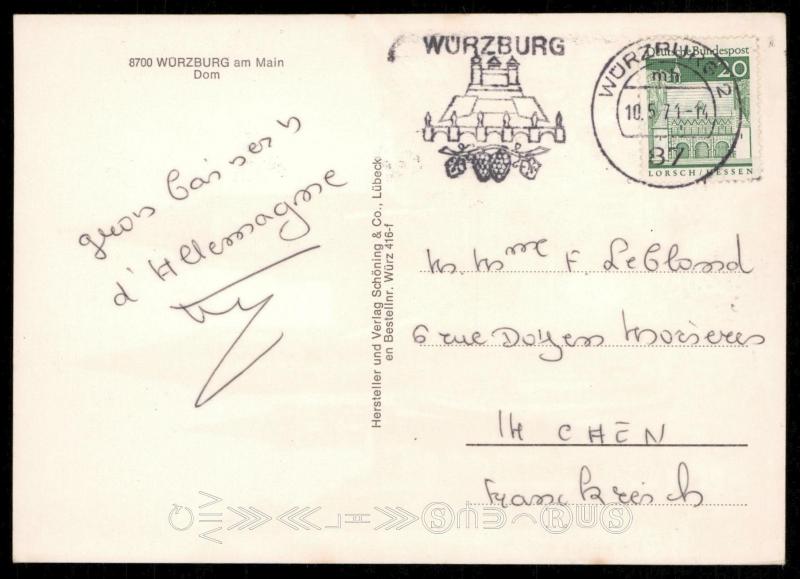 8700 WÜRZBURG am Main
Dom
gros baisers
d'Allemagne
Hersteller und Verlag Schöning & Co., Lübeck
en Bestellnr. Würz 416-f
WÜRZBURG
WÜRZBURG 2
mh
10.5.71-14
87
Deutsche Bundespost
20
LORSCH/HESSEN
M. Mme F. Leblond
6 rue Doyen
CHEN
Frankreich